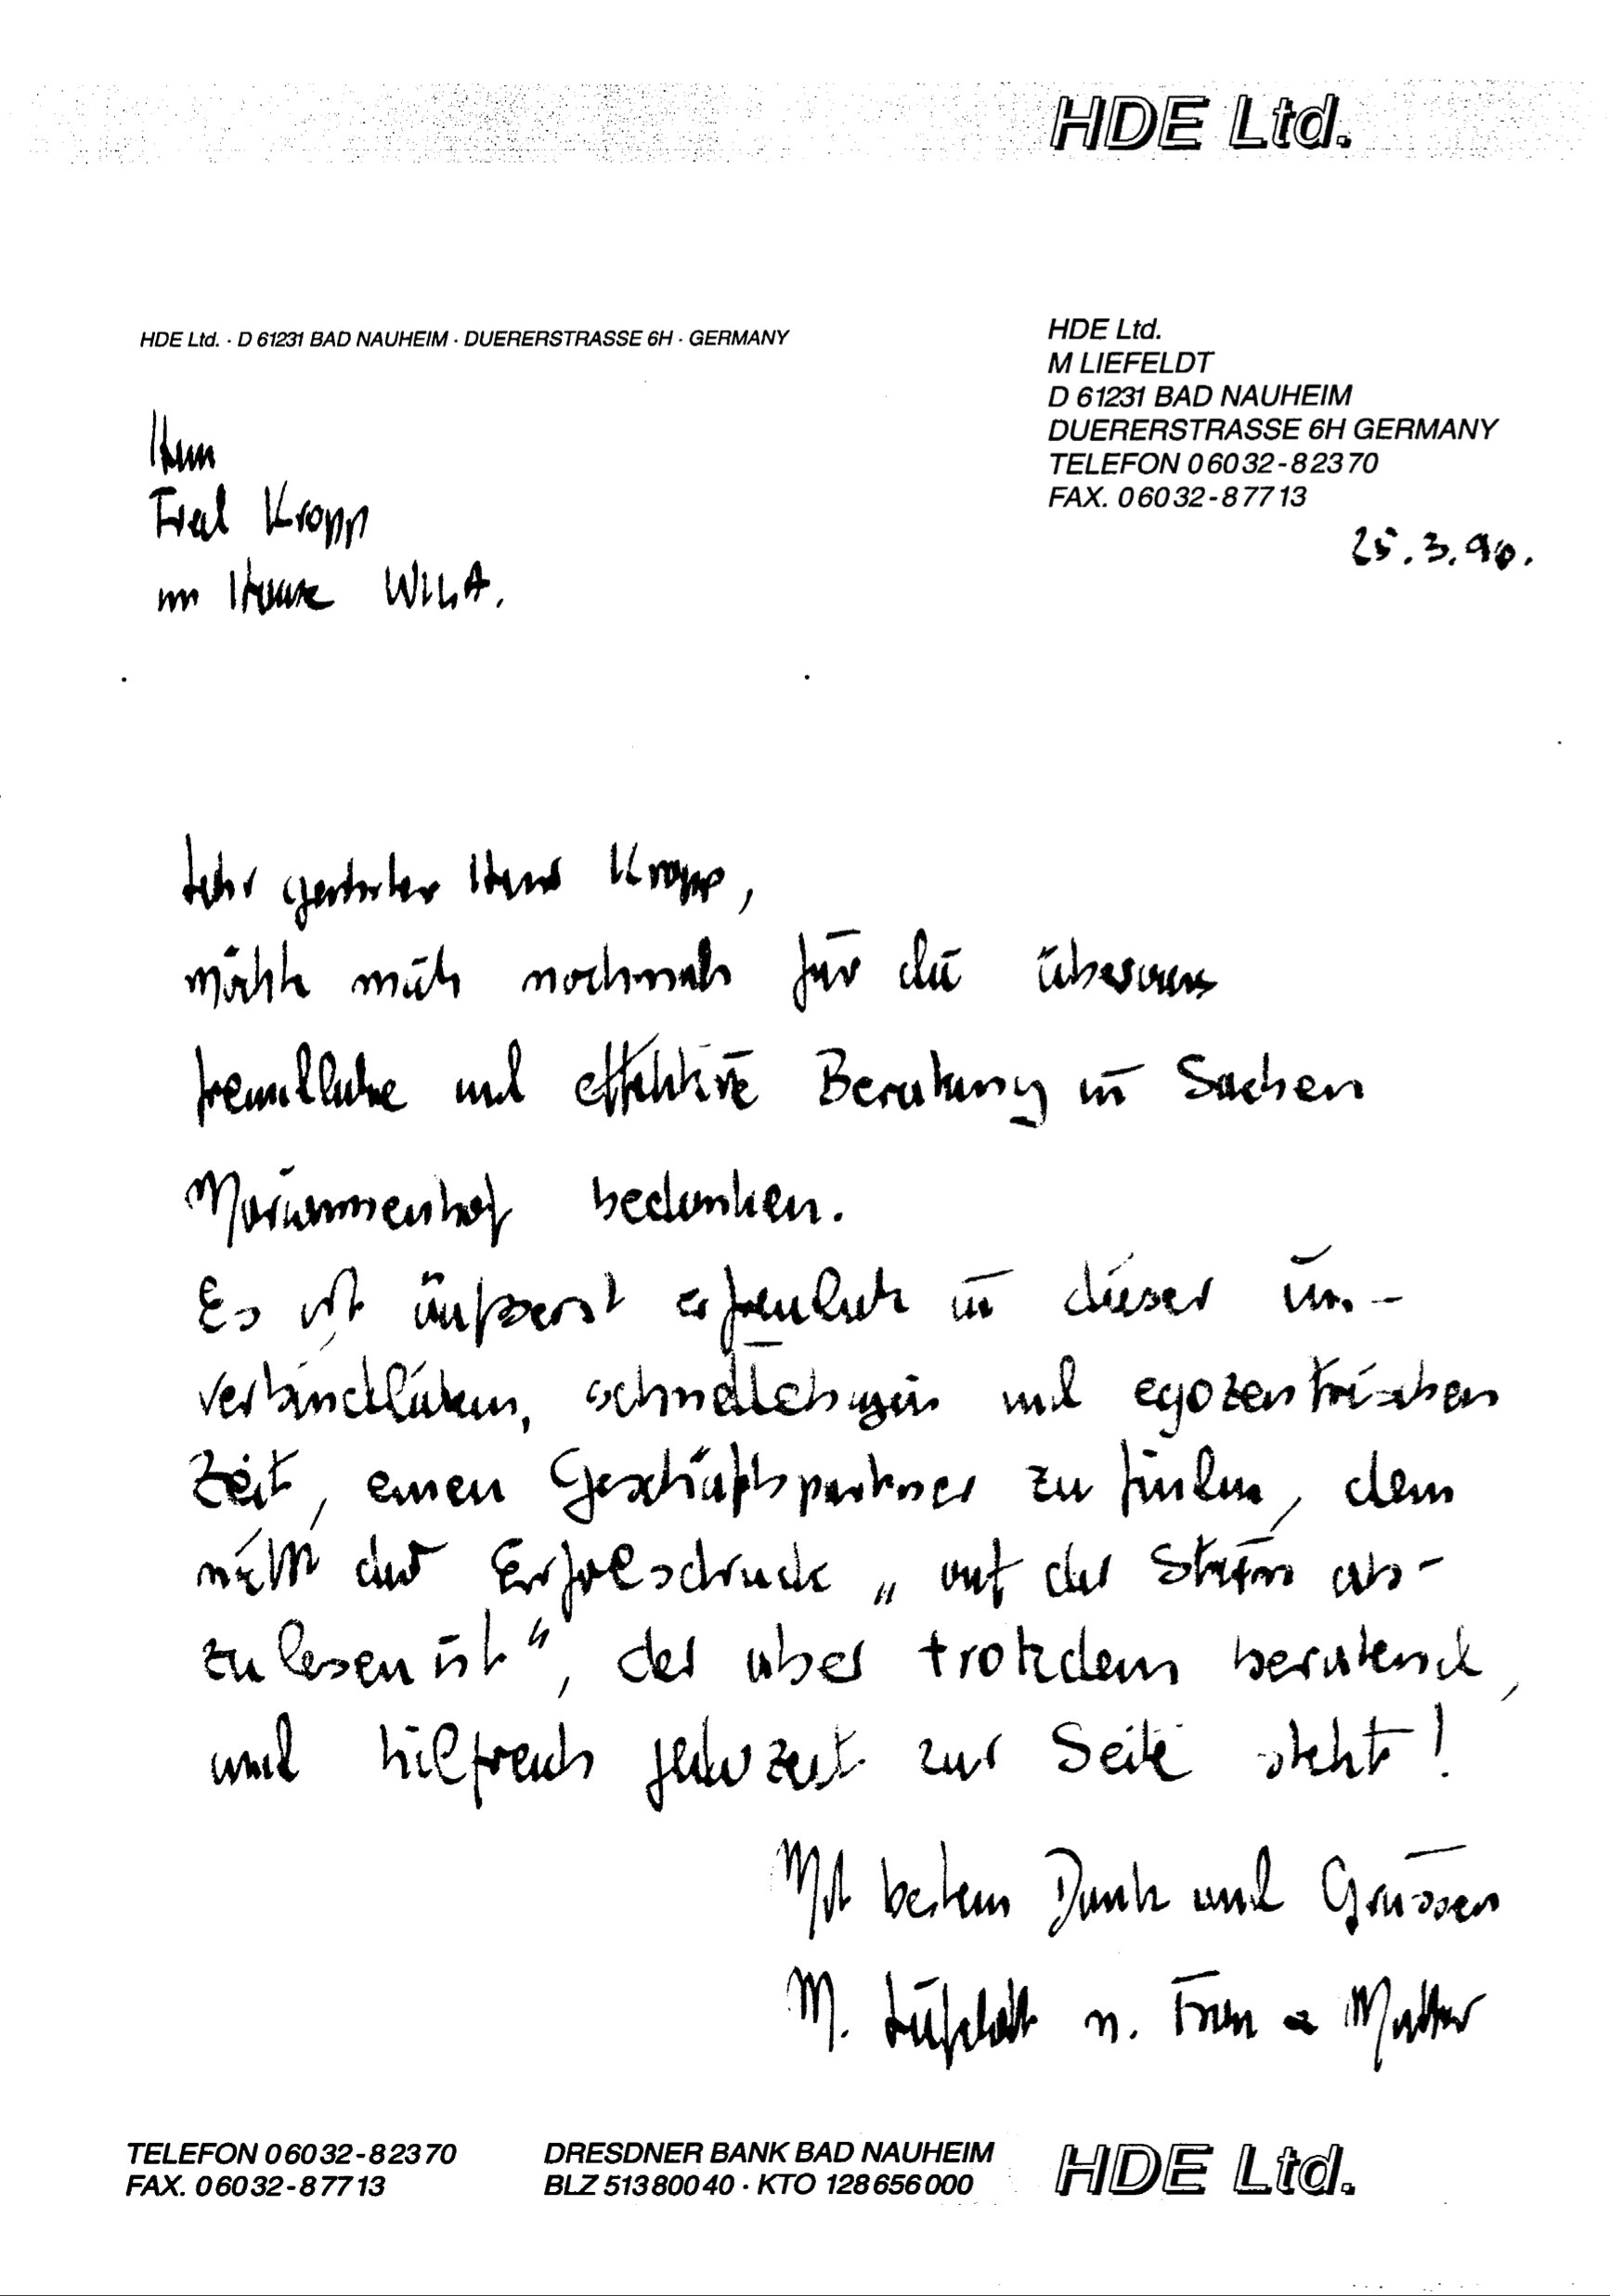 HDE Ltd.
HDE Ltd. · D 61231 BAD NAUHEIM · DUERERSTRASSE 6H · GERMANY
HDE Ltd.
M LIEFELDT
D 61231 BAD NAUHEIM
DUERERSTRASSE 6H GERMANY
TELEFON 0 60 32 - 8 23 70
FAX. 0 60 32 - 8 77 13
25.3.
Herrn
Fred Kropp
im Hause WILA.
Sehr geehrter Herr Kropp,
möchte mich nochmals für die überaus
freundliche und effektive Beratung in Sachen
Mariannenhof bedanken.
Es ist äußerst erfreulich in dieser un-
verbindlichen, schnellebigen und egozentrischen
Zeit, einen Geschäftspartner zu finden, dem
nicht der Erfolsdruck „auf der Stirn ab-
zulesen ist“, der aber trotzdem beratend,
und hilfreich jederzeit zur Seite steht!
Mit bestem Dank und Grüssen
M. Liefeldt n. Frau & Mutter
TELEFON 0 60 32 - 8 23 70
FAX. 0 60 32 - 8 77 13
DRESDNER BANK BAD NAUHEIM
BLZ 513 800 40 · KTO 128 656 000
HDE Ltd.